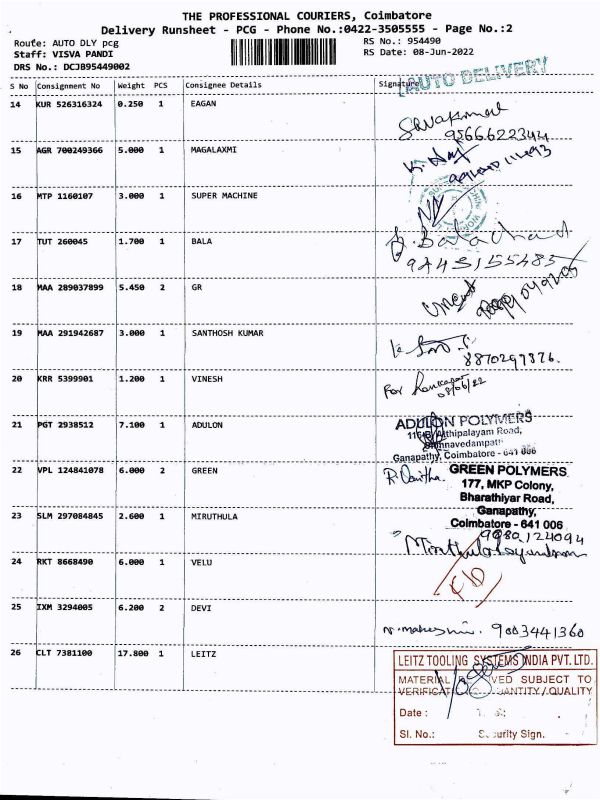 THE PROFESSIONAL COURIERS, Coimbatore
Delivery Runsheet - PCG - Phone No.:0422-3505555 - Page No.:2
Route: AUTO DLY pcg
RS No.: 954490
Staff: VISVA PANDI
RS Date: 08-Jun-2022
DRS No.: DCJB95449002
AUTO DELIVERY
S No Consignment No Weight PCS Consignee Details Signature
14 KUR 526316324 0.250 1 EAGAN
9566622344
15 AGR 700249366 5.000 1 MAGALAXMI
16 MTP 1160107 3.000 1 SUPER MACHINE
17 TUT 260045 1.700 1 BALA
9243155485
18 MAA 289037899 5.450 2 GR
19 MAA 291942687 3.000 1 SANTHOSH KUMAR
8870297876.
20 KRR 5399901 1.200 1 VINESH
For
08/06/22
21 PGT 2938512 7.100 1 ADULON
ADULON POLYMERS
Athipalayam Road,
Chinnavedampatti
Ganapathy, Coimbatore - 641 006
22 VPL 124841078 6.000 2 GREEN
GREEN POLYMERS
177, MKP Colony,
Bharathiyar Road,
Ganapathy,
Coimbatore - 641 006
23 SLM 297084845 2.600 1 MIRUTHULA
Miruthula
24 RKT 8668490 6.000 1 VELU
25 IXM 3294005 6.200 2 DEVI
9003441360
26 CLT 7381100 17.800 1 LEITZ
LEITZ TOOLING SYSTEMS INDIA PVT. LTD.
MATERIAL VED SUBJECT TO
VERIFICAT UANTITY/QUALITY
Date :
Sl. No.: Security Sign.